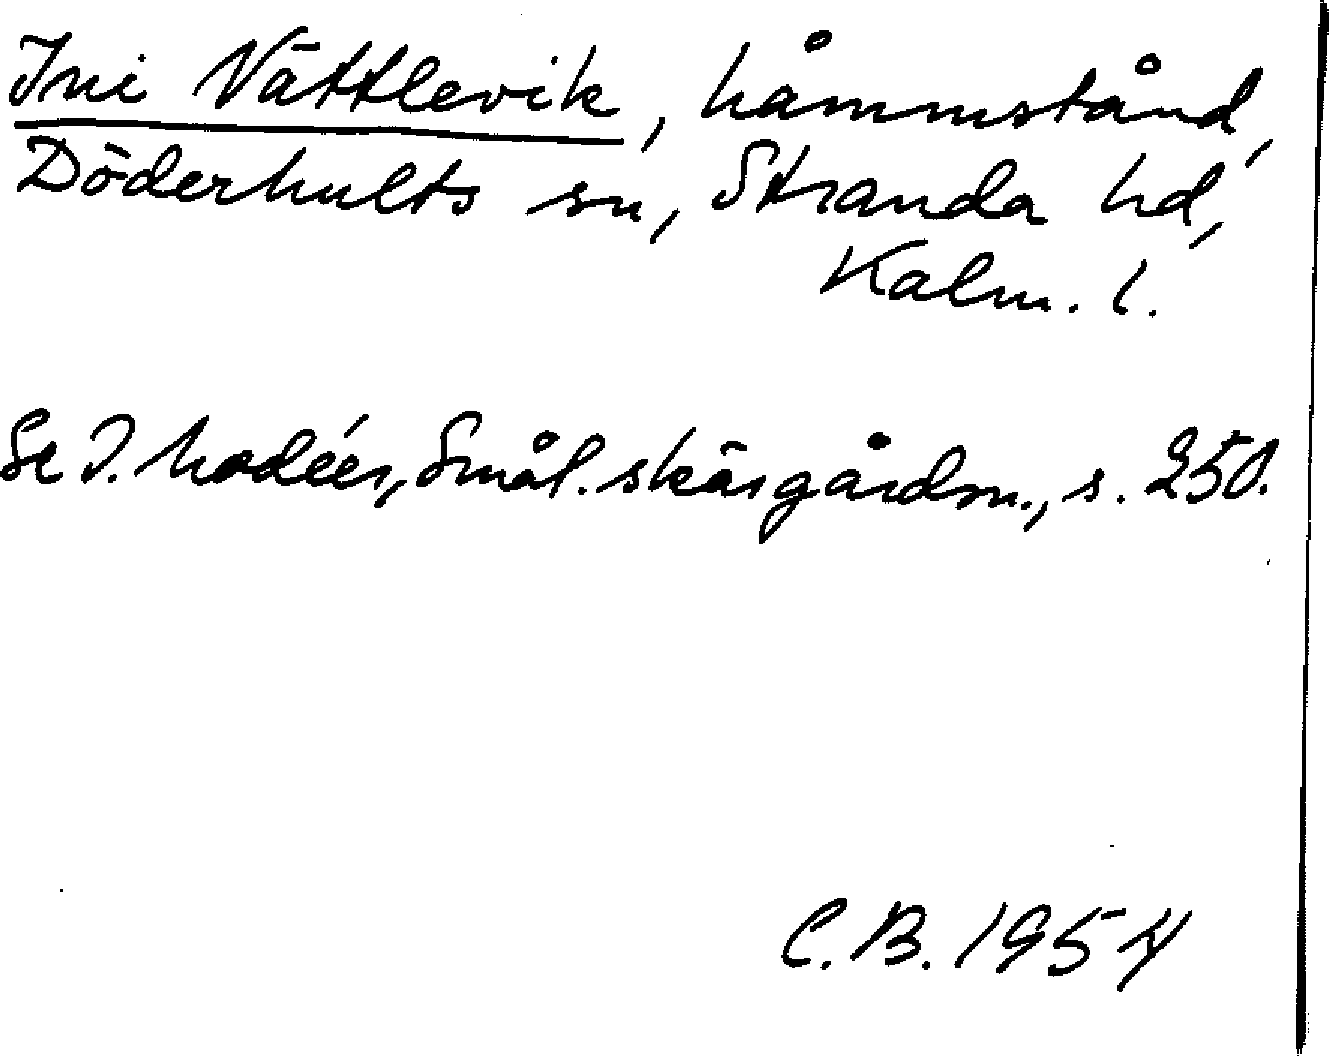 Ini Vättlevik, håmmstånd,
Döderhults sn, Stranda hd,
Kalm. l.
Se I. Modéer, Smål. skärgårdsn., s. 250.
C.B. 1954